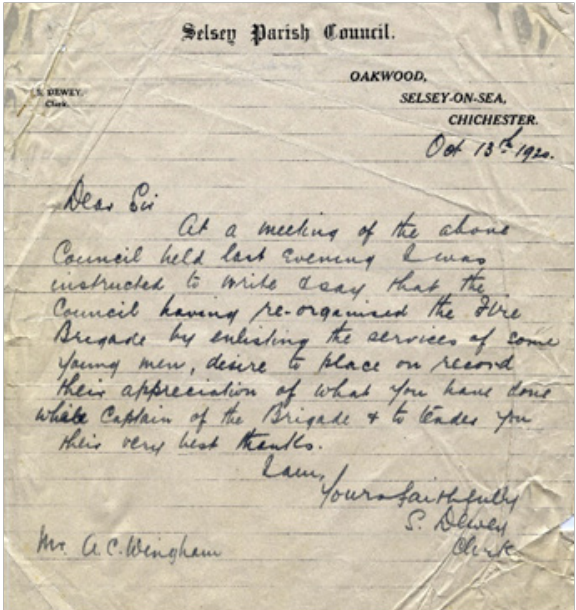 Selsey Parish Council.
S. DEWEY.
Clerk.
OAKWOOD,
SELSEY-ON-SEA,
CHICHESTER.
Oct 13th 1920.
Dear Sir
At a meeting of the above
Council held last evening I was
instructed to write & say that the
Council having re-organised the Fire
Brigade by enlisting the services of some
young men, desire to place on record
their appreciation of what you have done
while Captain of the Brigade & to tender you
their very best thanks.
I am,
Yours faithfully
S. Dewey
Clerk
Mr. A.C. Wingham